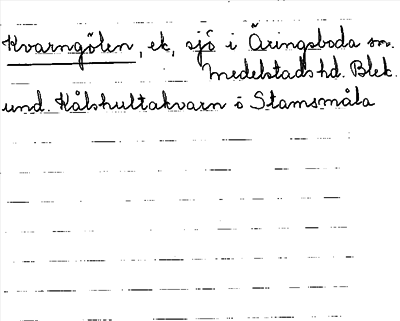 Kvarngölen, ek, sjö i Äringsboda sn.
Medelstads hd. Blek.
und. Kålshultakvarn ö Stamsmåla